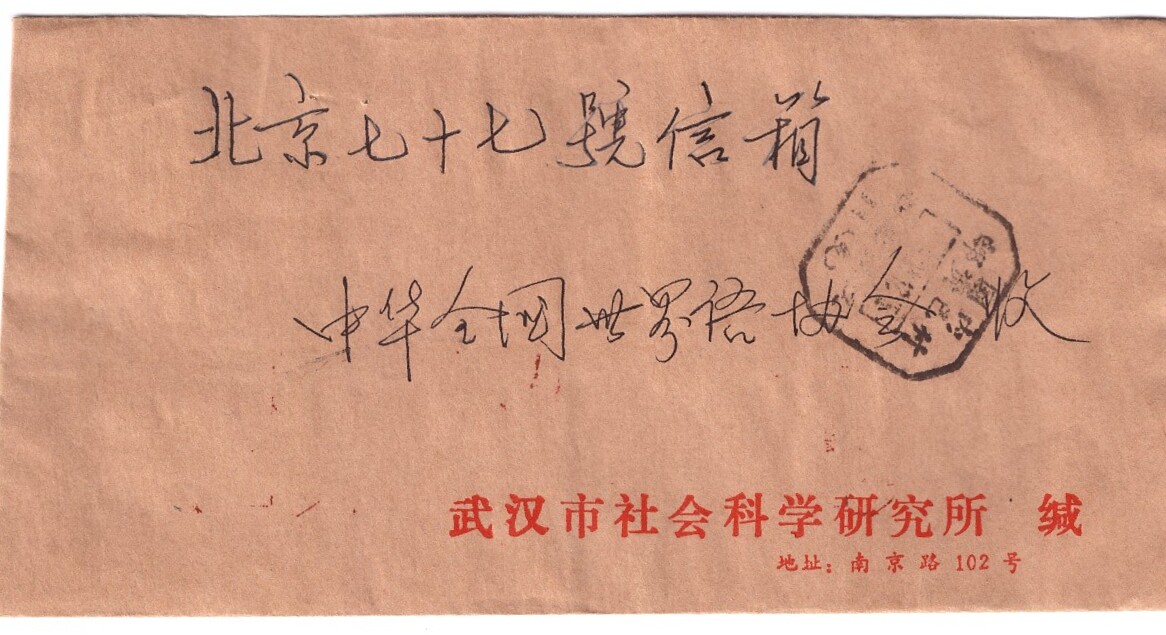 北京七十七號信箱
中华全国世界语协会 收
武汉市社会科学研究所 缄
地址：南京路 102 号